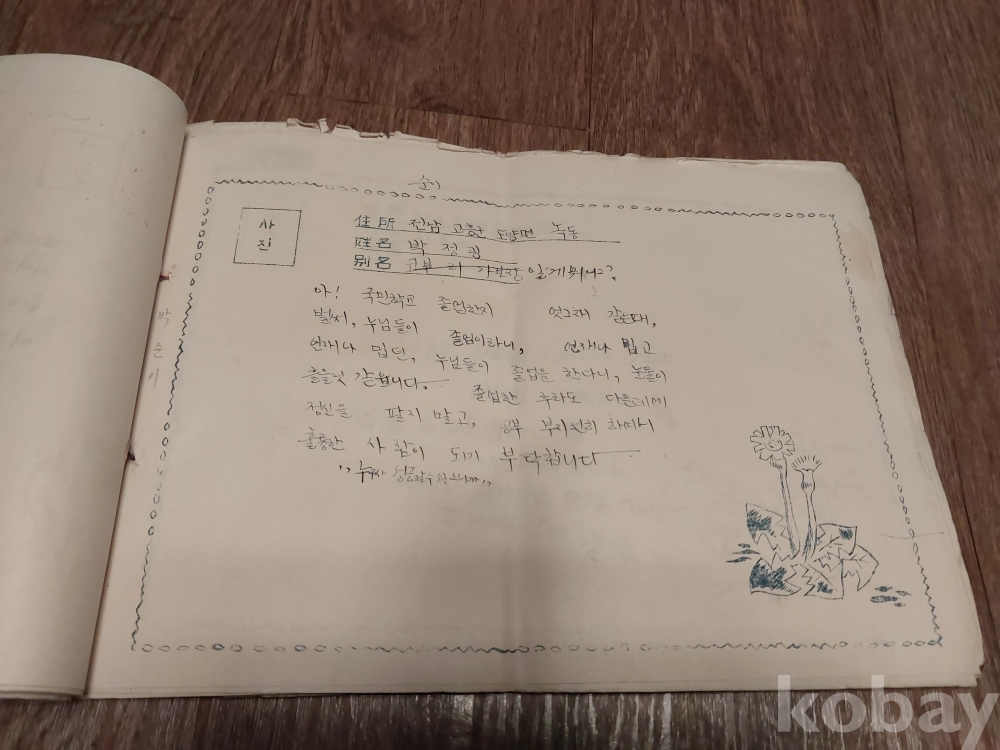 순이
사진
住所 전남 고흥군 도양면 녹동
姓名 박정광
別名 고부리 가보장 일게뭐냐?
아! 국민학교 졸업한지 엇그재 같은대,
벌써, 누님들이 졸업이라니, 언재나 밉고
언재나 밉던, 누님들이 졸업을 한다니, 눈물이
흘을것 같읍니다.
졸업한 후라도 다른데에
정신을 팔지 말고, 공부 부지런히 하여
훌륭한 사람이 되기 부탁합니다
박순이
kobay